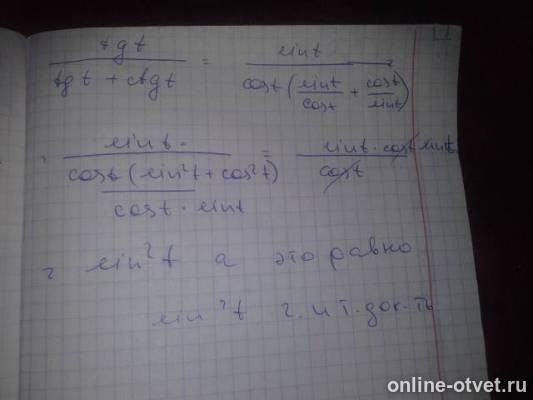 tg t / (tg t + ctg t) = sin t / (cos t (sin t / cos t + cos t / sin t))
= sin t · / (cos t (sin² t + cos² t) / (cos t · sin t)) = sin t · cos t sin t / cos t
= sin² t а это равно
sin² t ч. и т. док-ть
online-otvet.ru